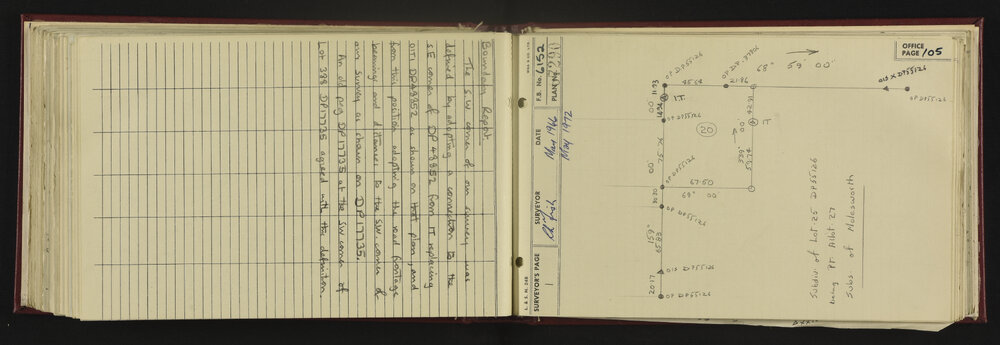 Boundary Report
The S.W corner of our survey was
defined by adopting a connection to the
S.E corner of DP 48852 from IT replacing
OITI DP48852 as shown on that plan, and
from this position adopting the road frontage
bearing and distances to the S.W. corner of
our survey as shown on DP17735.
An old peg DP17735 at the SW corner of
Lot 388 DP17735 agreed with the definition.
L. & S. M. 248
SURVEYOR'S PAGE
1
SURVEYOR
DATE
May 1966
May 1972
F.B. No. 6152
PLAN No.
OFFICE
PAGE 105
OP DP55126
11.93
45.64
21.86
68° 59' 00"
OIS X DP55126
OP DP55126
I.T.
OP DP55126
00"
75.74
20
42.91
IT
00"
339°
53.74
OP DP55126
67.50
69° 00'
30.20
OP DP55126
159°
65.83
OIS DP55126
20.17
OP DP55126
Subdiv. of Lot 25 DP 55126
being Pt Allot 27
Subs of Molesworth